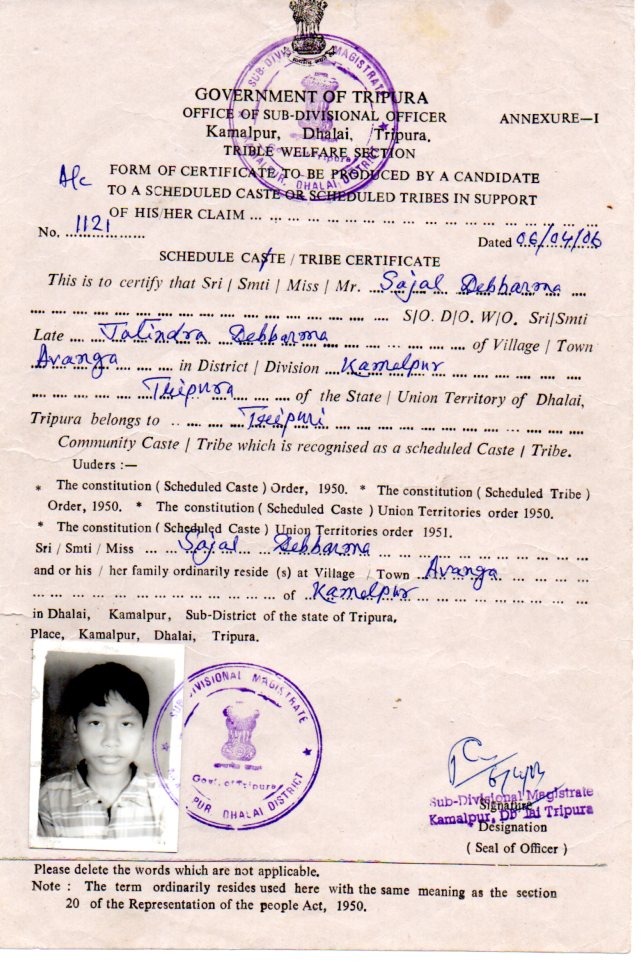 SUB-DIVISIONAL MAGISTRATE
KAMALPUR, DHALAI DISTRICT
Govt. of Tripura
GOVERNMENT OF TRIPURA
OFFICE OF SUB-DIVISIONAL OFFICER ANNEXURE—I
Kamalpur, Dhalai, Tripura.
TRIBLE WELFARE SECTION
FORM OF CERTIFICATE TO BE PRODUCED BY A CANDIDATE
TO A SCHEDULED CASTE OR SCHEDULED TRIBES IN SUPPORT
OF HIS/HER CLAIM ... ... ... ... ... ... ... ... ... ... ... ...
No. 1121 Dated 06/04/06
SCHEDULE CASTE / TRIBE CERTIFICATE
This is to certify that Sri / Smti / Miss / Mr. Sajal Debbarma
S/O. D/O. W/O. Sri/Smti
Late Jatindra Debbarma of Village / Town
Avanga in District / Division Kamalpur
Tripura of the State / Union Territory of Dhalai,
Tripura belongs to Tripuri
Community Caste / Tribe which is recognised as a scheduled Caste / Tribe.
Uuders :—
* The constitution ( Scheduled Caste ) Order, 1950. * The constitution ( Scheduled Tribe )
Order, 1950. * The constitution ( Scheduled Caste ) Union Territories order 1950.
* The constitution ( Scheduled Caste ) Union Territories order 1951.
Sri / Smti / Miss ... Sajal Debbarma
and or his / her family ordinarily reside (s) at Village / Town Avanga
of Kamalpur
in Dhalai, Kamalpur, Sub-District of the state of Tripura,
Place, Kamalpur, Dhalai, Tripura.
SUB-DIVISIONAL MAGISTRATE
Govt. of Tripura
PUR, DHALAI DISTRICT
Sub-Divisional Magistrate
Signature
Kamalpur, Dhalai Tripura
Designation
( Seal of Officer )
Please delete the words which are not applicable.
Note : The term ordinarily resides used here with the same meaning as the section
20 of the Representation of the people Act, 1950.